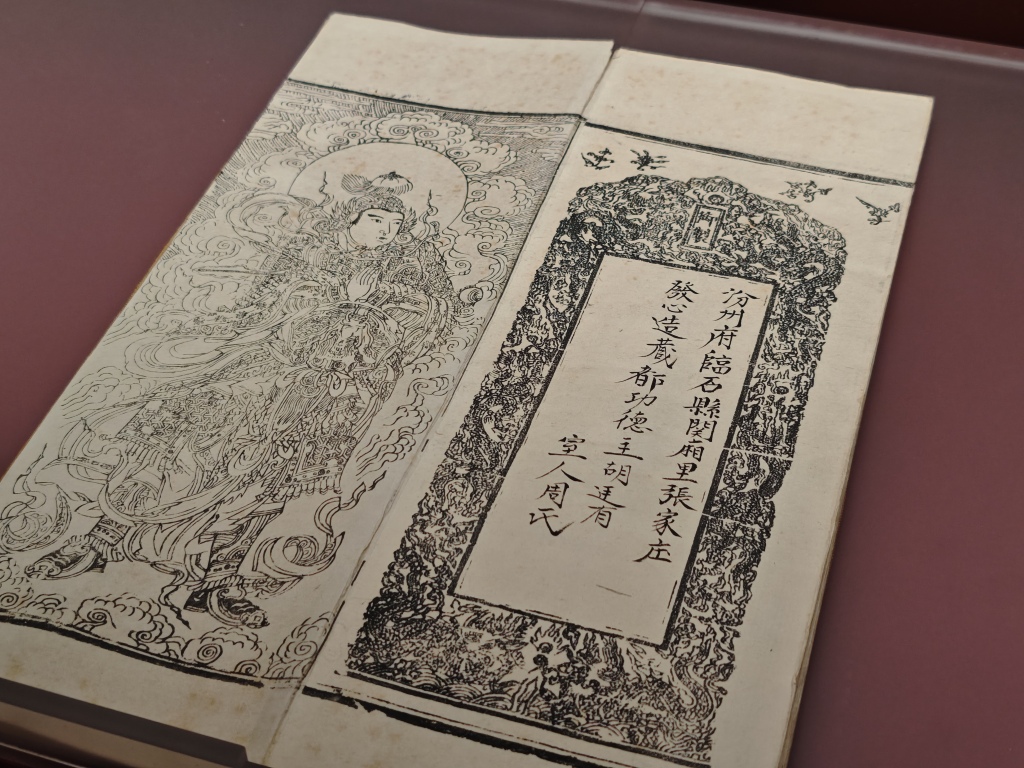 御製
汾州府臨石縣関廂里張家庄
發心造蔵都功徳主胡廷有
室人周氏